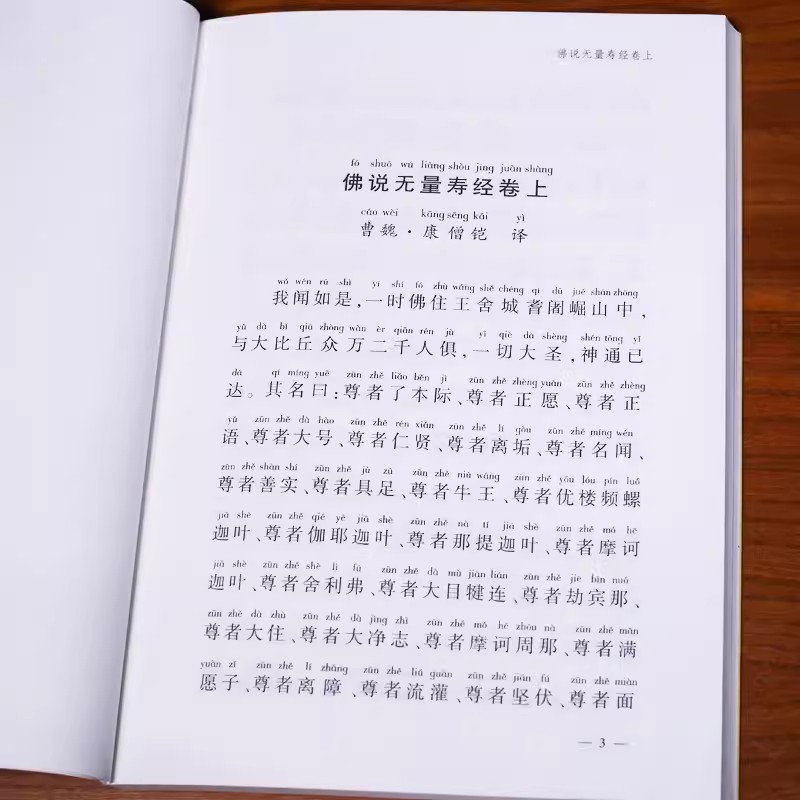 佛说无量寿经卷上
fó shuō wú liàng shòu jīng juàn shàng
佛说无量寿经卷上
cáo wèi kāng sēng kǎi yì
曹魏·康僧铠 译
wǒ wén rú shì yì shí fó zhù wáng shè chéng qí dū jué shān zhōng
我闻如是,一时佛住王舍城耆阇崛山中,
yǔ dà bǐ qiū zhòng wàn èr qiān rén jù yí qiè dà shèng shén tōng yǐ
与大比丘众万二千人俱,一切大圣,神通已
dá qí míng yuē zūn zhě liǎo běn jì zūn zhě zhèng yuàn zūn zhě zhèng
达。其名曰:尊者了本际、尊者正愿、尊者正
yǔ zūn zhě dà hào zūn zhě rén xián zūn zhě lí gòu zūn zhě míng wén
语、尊者大号、尊者仁贤、尊者离垢、尊者名闻、
zūn zhě shàn shí zūn zhě jù zú zūn zhě niú wáng zūn zhě yōu lóu pín luó
尊者善实、尊者具足、尊者牛王、尊者优楼频螺
jiā shè zūn zhě qié yē jiā shè zūn zhě nà tí jiā shè zūn zhě mó hē
迦叶、尊者伽耶迦叶、尊者那提迦叶、尊者摩诃
jiā shè zūn zhě shè lì fú zūn zhě dà mù jiàn lián zūn zhě jié bīn nuó
迦叶、尊者舍利弗、尊者大目犍连、尊者劫宾那、
zūn zhě dà zhù zūn zhě dà jìng zhì zūn zhě mó hē zhōu nà zūn zhě mǎn
尊者大住、尊者大净志、尊者摩诃周那、尊者满
yuàn zǐ zūn zhě lí zhàng zūn zhě liú guàn zūn zhě jiān fú zūn zhě miàn
愿子、尊者离障、尊者流灌、尊者坚伏、尊者面
— 3 —